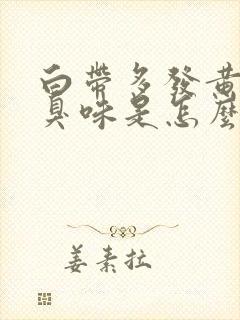 白帶多發黃
臭味是怎麼
姜素拉